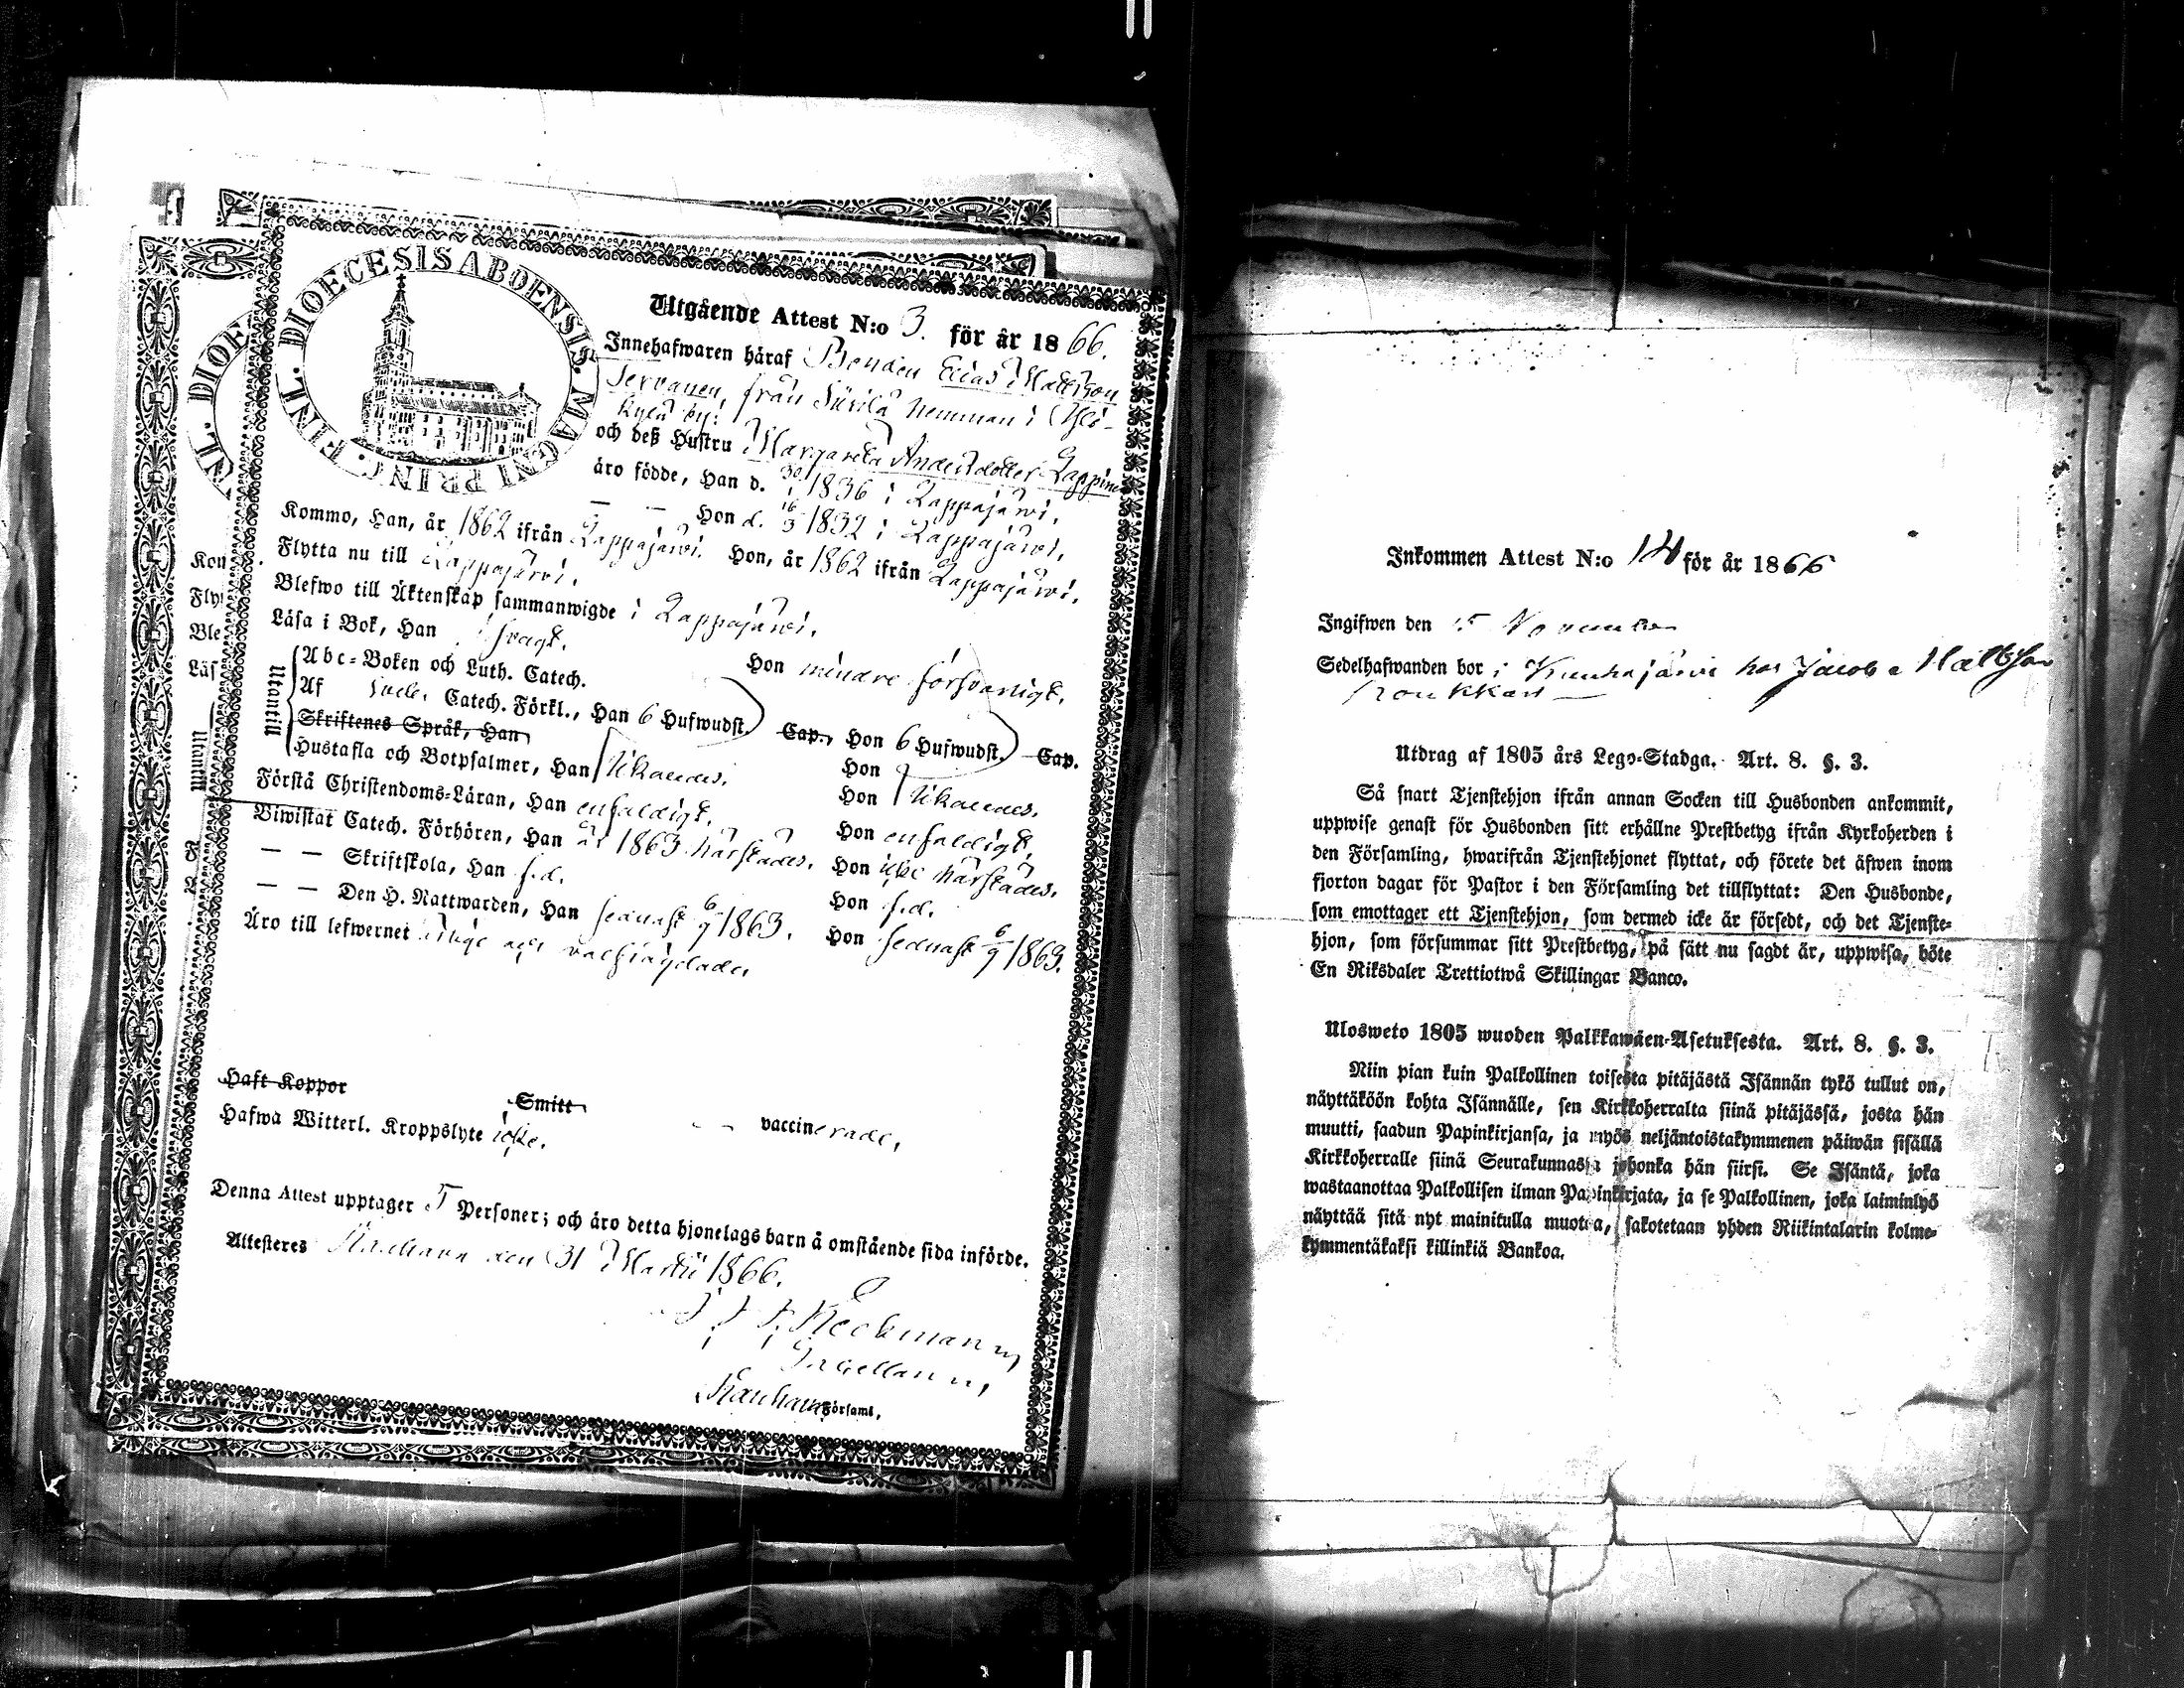 FINL. DIOECESIS ABOENSIS. MAGNI PRINC.
Utgående Attest N:o 3. för år 1866.
Innehafwaren häraf Bonden Elias Mattsson
Servanen, från Siirilä hemman i Yli-
kylä by:
och deß Hustru Margareta Andersdotter Lappinen
äro födde, Han d. 1836 i Lappajärvi.
— — Hon d. 16/3 1832 i Lappajärvi.
Kommo, Han, år 1862 ifrån Lappajärvi. Hon, år 1862 ifrån Lappajärvi.
Flytta nu till Lappajärvi.
Blefwo till Äktenskap sammanwigde i Lappajärvi.
Läsa i Bok, Han svagt. Hon mindre försvarligt.
Utantill
Abc-Boken och Luth. Catech.
Af Catech. Förkl., Han 6 Hufwudst. Cap., Hon 6 Hufwudst. Cap.
Skriftenes Språk, Han Hon
Hustafla och Botpsalmer, Han Utkanens. Hon Utkanens.
Förstå Christendoms-Läran, Han enfaldigt. Hon enfaldigt.
Biwistat Catech. Förhören, Han år 1863 härstädes. Hon icke härstädes.
— — Skriftskola, Han f.d. Hon f.d.
— — Den H. Nattwarden, Han sednast 6/9 1863. Hon sednast 6/9 1863.
Äro till lefwernet ärlige och välfrägdade.
Haft Koppor Smitt vaccinerade.
Hafwa Witterl. Kroppslyte icke.
Denna Attest upptager 5 Personer; och äro detta hjonelags barn å omstående sida införde.
Attesteras Kauhava den 31 Martii 1866.
Heckman
Kauhava Församl.
Inkommen Attest N:o 14 för år 1866
Ingifwen den 5 November
Sedelhafwanden bor i Kauhajärvi hos Jacob Mattsson
Utdrag af 1805 års Lego-Stadga. Art. 8. §. 3.
Så snart Tjenstehjon ifrån annan Socken till Husbonden ankommit,
uppwise genast för Husbonden sitt erhållne Prestbetyg ifrån Kyrkoherden i
den Församling, hwarifrån Tjenstehjonet flyttat, och förete det äfwen inom
fjorton dagar för Pastor i den Församling det tillflyttat: Den Husbonde,
som emottager ett Tjenstehjon, som dermed icke är försedt, och det Tjenste-
hjon, som försummar sitt Prestbetyg, på sätt nu sagdt är, uppwisa, böte
En Riksdaler Trettiotwå Skillingar Banco.
Ulosweto 1805 wuoden Palkkawäen-Asetuksesta. Art. 8. §. 3.
Niin pian kuin Palkollinen toisesta pitäjästä Isännän tykö tullut on,
näyttäköön kohta Isännälle, sen Kirkkoherralta siinä pitäjässä, josta hän
muutti, saadun Papinkirjansa, ja myös neljäntoistakymmenen päiwän sisällä
Kirkkoherralle siinä Seurakunnassa johonka hän siirsi. Se Isäntä, joka
wastaanottaa Palkollisen ilman Papinkirjata, ja se Palkollinen, joka laiminlyö
näyttää sitä nyt mainitulla muotoa, sakotetaan yhden Riikintalarin kolme-
kymmentäkaksi killinkiä Bankoa.